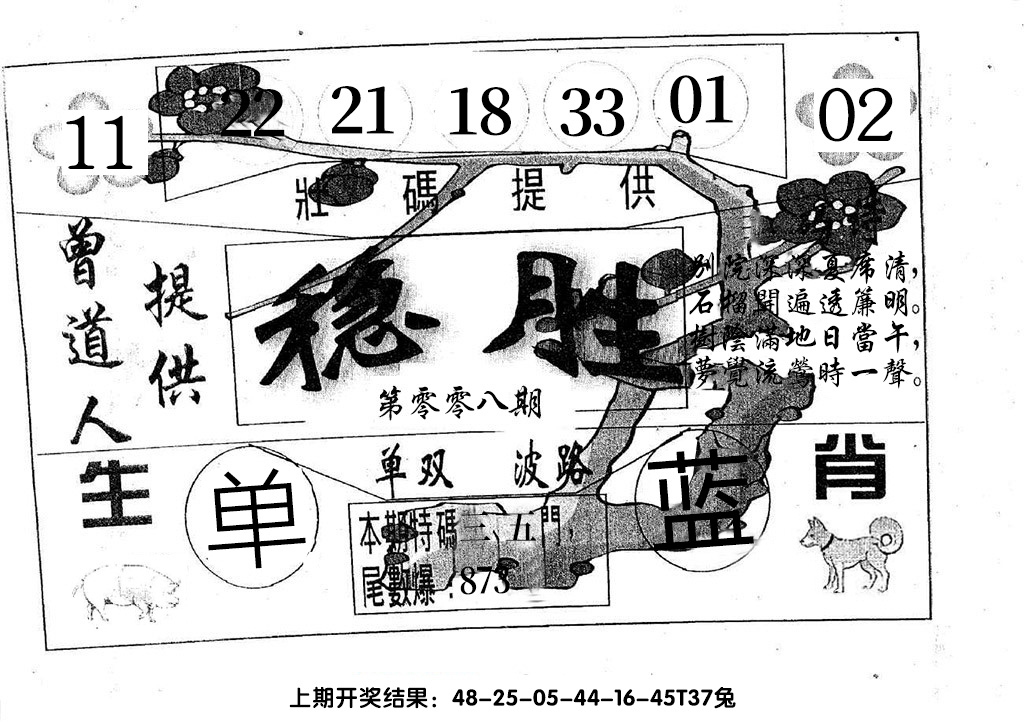 11 22 21 18 33 01 02
壯碼提供
曾道人
提供
稳胜
第零零八期
特
别院深深夏席清，
石榴開遍透簾明。
樹陰滿地日當午，
夢覺流鶯時一聲。
单双 波路
生肖
单
蓝
本期特碼三、五門，
尾數爆：873
上期开奖结果：48-25-05-44-16-45T37兔